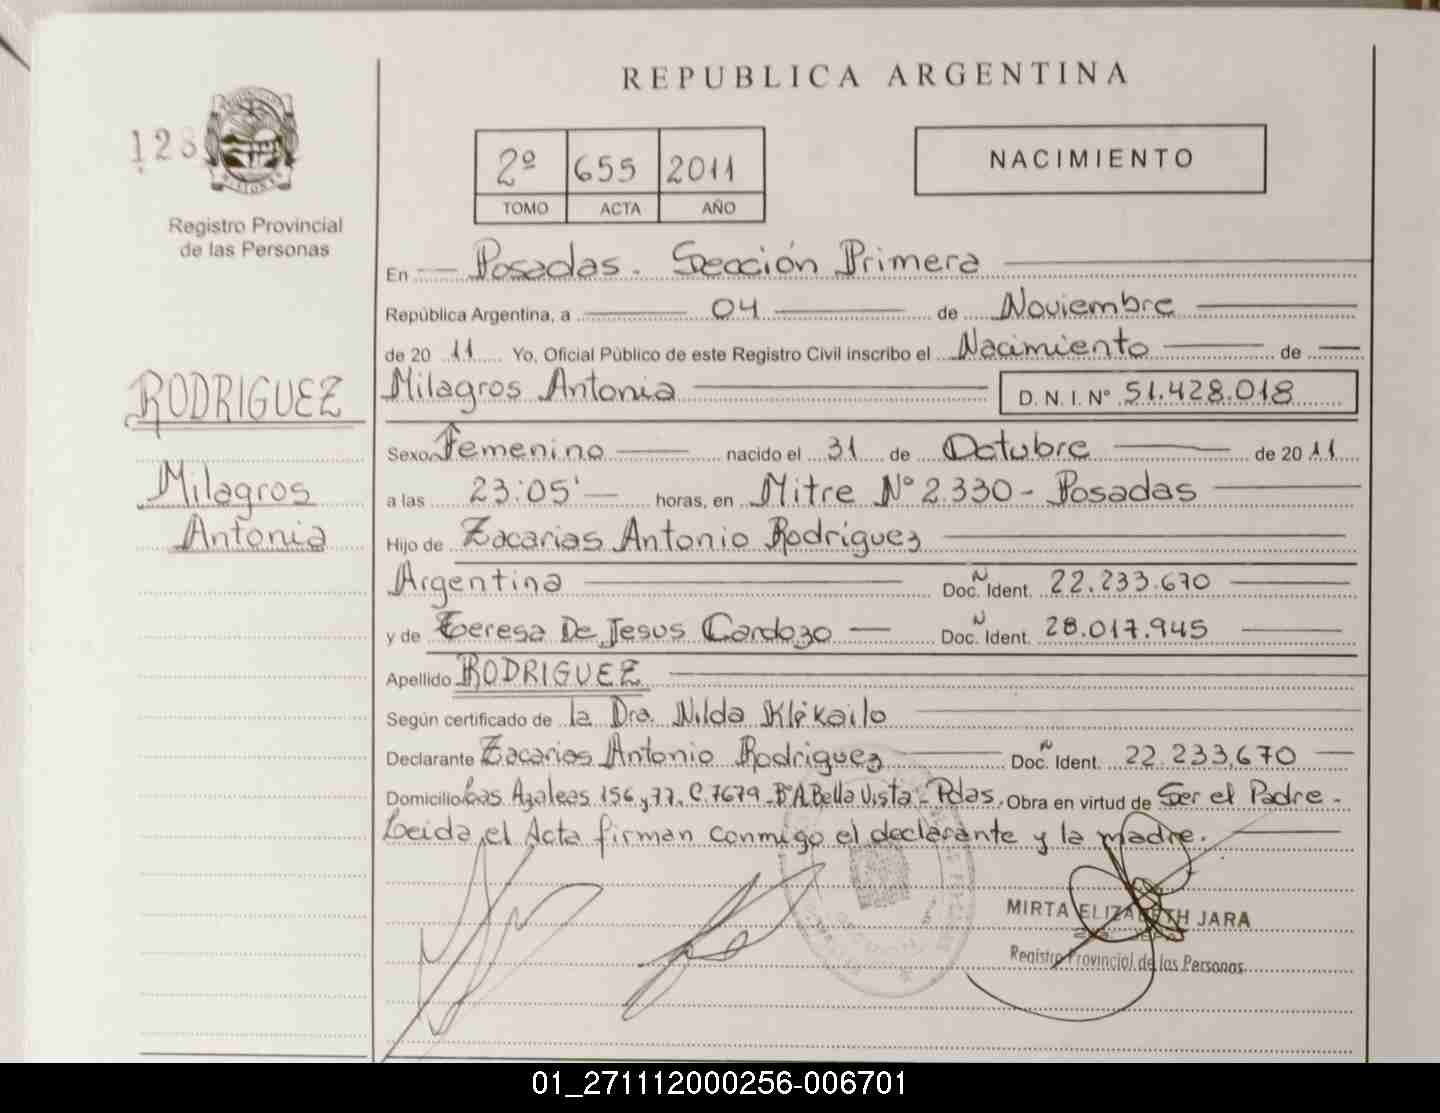 REPUBLICA ARGENTINA
128
MISIONES
Registro Provincial
de las Personas
2º 655 2011
TOMO ACTA AÑO
NACIMIENTO
En Posadas. Sección Primera
República Argentina, a 04 de Noviembre
de 2011 Yo, Oficial Público de este Registro Civil inscribo el Nacimiento de
Milagros Antonia D. N. I. Nº 51.428.018
RODRIGUEZ
Milagros
Antonia
Sexo Femenino nacido el 31 de Octubre de 2011
a las 23:05' horas, en Mitre Nº 2.330 - Posadas
Hijo de Zacarias Antonio Rodriguez
Argentina Doc. Ident. 22.233.670
y de Teresa De Jesus Cardozo Doc. Ident. 28.017.945
Apellido RODRIGUEZ
Según certificado de la Dra. Nilda Klekailo
Declarante Zacarias Antonio Rodriguez Doc. Ident. 22.233.670
Domicilio Las Azaleas 156 y 77. C. 7679 - Bº A. Bella Vista - Pdas. Obra en virtud de Ser el Padre.
Leida el Acta firman conmigo el declarante y la madre.
MIRTA ELIZABETH JARA
Registro Provincial de las Personas
01_271112000256-006701